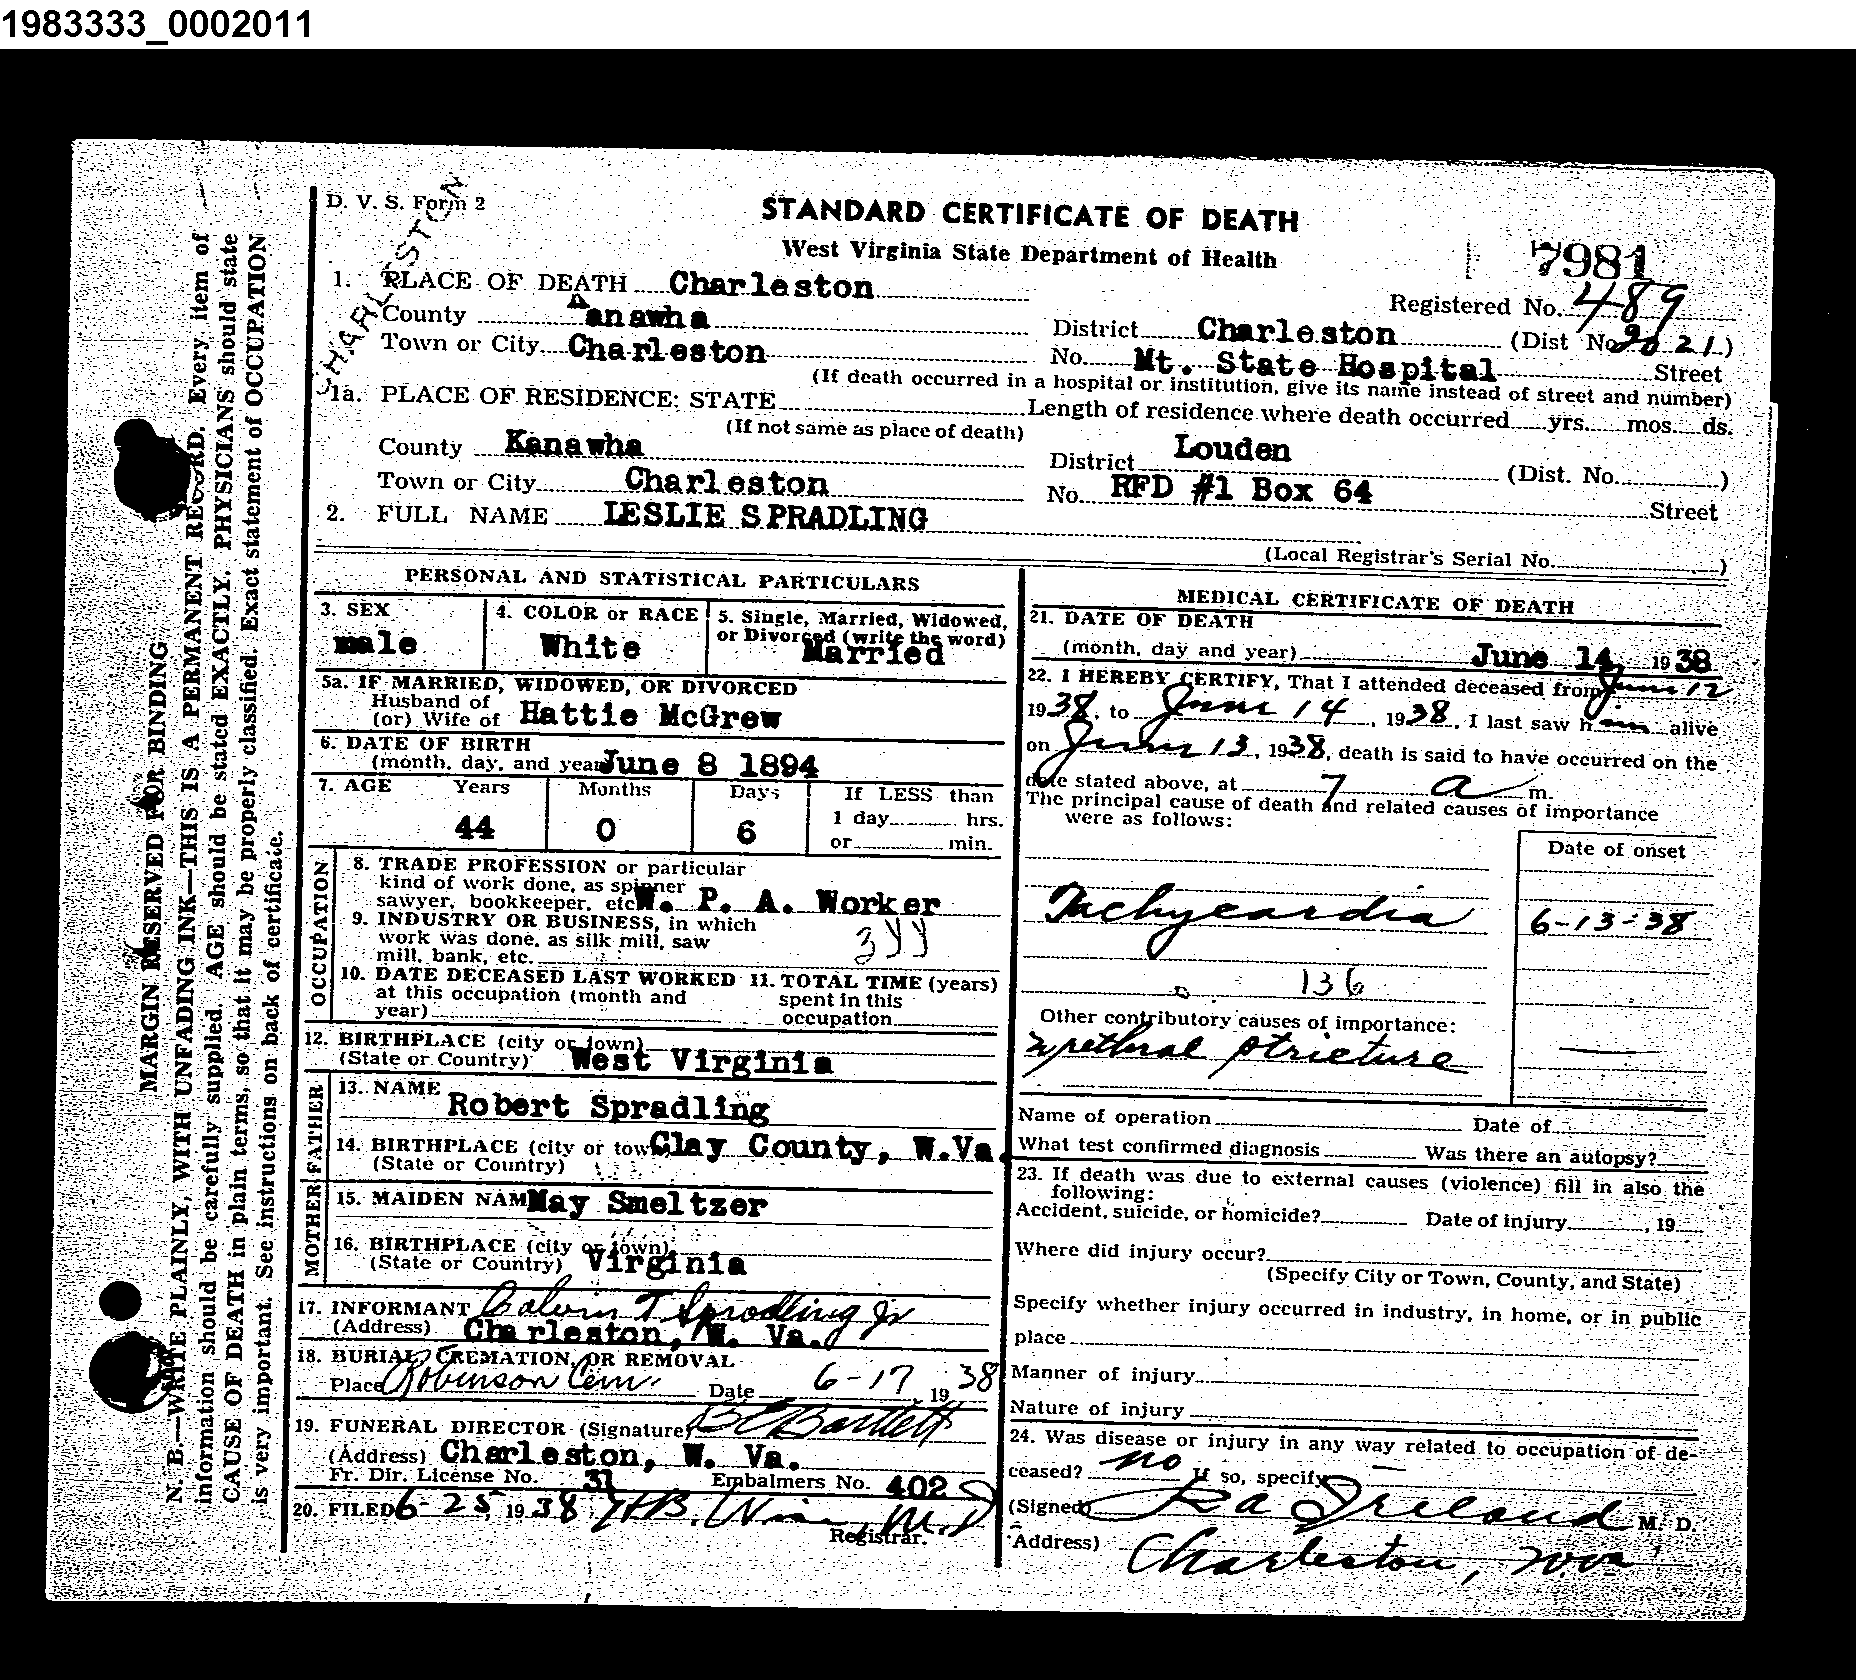 1983333_0002011
D. V. S. Form 2
CHARLESTON
STANDARD CERTIFICATE OF DEATH
West Virginia State Department of Health
7981
1. PLACE OF DEATH Charleston
Registered No. 489
County Kanawha
District Charleston (Dist No. 2021)
Town or City Charleston
No. Mt. State Hospital Street
(If death occurred in a hospital or institution, give its name instead of street and number)
1a. PLACE OF RESIDENCE: STATE
Length of residence where death occurred yrs. mos. ds.
(If not same as place of death)
County Kanawha
District Louden (Dist. No. )
Town or City Charleston
No. RFD #1 Box 64 Street
2. FULL NAME LESLIE SPRADLING
(Local Registrar's Serial No. )
PERSONAL AND STATISTICAL PARTICULARS
3. SEX
male
4. COLOR or RACE
White
5. Single, Married, Widowed,
or Divorced (write the word)
Married
5a. IF MARRIED, WIDOWED, OR DIVORCED
Husband of
(or) Wife of Hattie McGrew
6. DATE OF BIRTH
(month, day, and year) June 8 1894
7. AGE Years Months Days If LESS than
1 day hrs.
44 0 6
or min.
OCCUPATION
8. TRADE PROFESSION or particular
kind of work done, as spinner
sawyer, bookkeeper, etc. W. P. A. Worker
9. INDUSTRY OR BUSINESS, in which
work was done, as silk mill, saw
mill, bank, etc.
10. DATE DECEASED LAST WORKED
at this occupation (month and
year)
11. TOTAL TIME (years)
spent in this
occupation
12. BIRTHPLACE (city or town)
(State or Country) West Virginia
FATHER
13. NAME Robert Spradling
14. BIRTHPLACE (city or town) Clay County, W.Va.
(State or Country)
MOTHER
15. MAIDEN NAME May Smeltzer
16. BIRTHPLACE (city or town)
(State or Country) Virginia
17. INFORMANT Calvin T Spradling Jr
(Address) Charleston, W. Va.
18. BURIAL, CREMATION, OR REMOVAL
Place Robinson Cem. Date 6-17 1938
19. FUNERAL DIRECTOR (Signature) B C Bartlett
(Address) Charleston, W. Va.
Fr. Dir. License No. 31 Embalmers No. 402
20. FILED 6-25, 1938 H.B. M.D
Registrar.
MEDICAL CERTIFICATE OF DEATH
21. DATE OF DEATH
(month, day and year) June 14, 1938
22. I HEREBY CERTIFY, That I attended deceased from June 12
1938, to June 14, 1938, I last saw him alive
on June 13, 1938, death is said to have occurred on the
date stated above, at 7 a m.
The principal cause of death and related causes of importance
were as follows:
Date of onset
Tachycardia 6-13-38
136
Other contributory causes of importance:
urethral stricture
Name of operation Date of
What test confirmed diagnosis Was there an autopsy?
23. If death was due to external causes (violence) fill in also the
following:
Accident, suicide, or homicide? Date of injury , 19
Where did injury occur?
(Specify City or Town, County, and State)
Specify whether injury occurred in industry, in home, or in public
place
Manner of injury
Nature of injury
24. Was disease or injury in any way related to occupation of de-
ceased? no If so, specify
(Signed) Ireland M. D.
(Address) Charleston, W.Va
MARGIN RESERVED FOR BINDING
N. B.—WRITE PLAINLY, WITH UNFADING INK—THIS IS A PERMANENT RECORD. Every item of
information should be carefully supplied. AGE should be stated EXACTLY. PHYSICIANS should state
CAUSE OF DEATH in plain terms, so that it may be properly classified. Exact statement of OCCUPATION
is very important. See instructions on back of certificate.